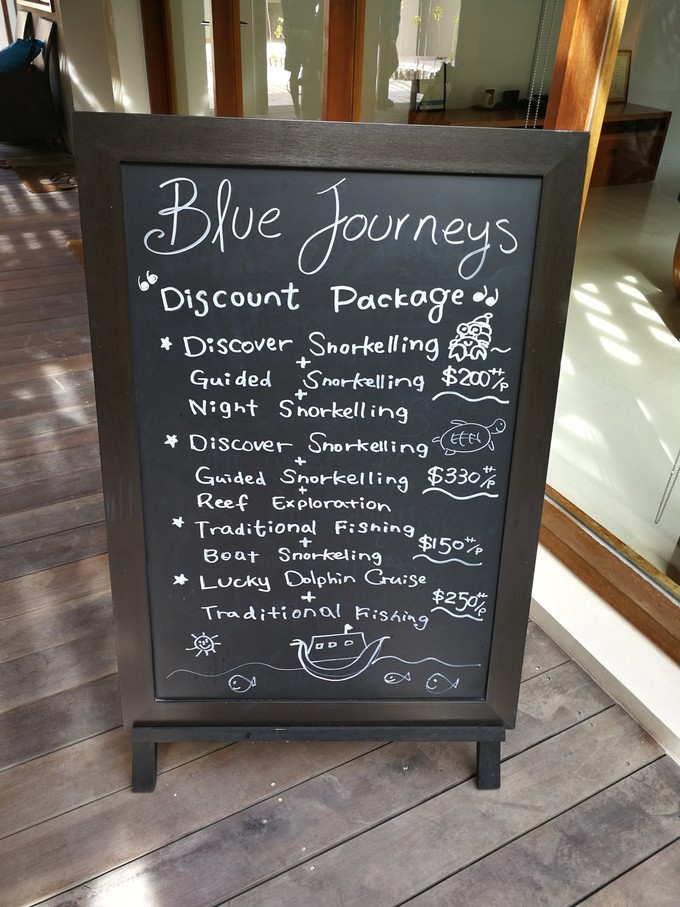 Blue Journeys
"Discount Package"
* Discover Snorkelling
+
Guided Snorkelling $200++/p
+
Night Snorkelling
* Discover Snorkelling
+
Guided Snorkelling $330++/p
+
Reef Exploration
* Traditional Fishing
+
Boat Snorkeling $150++/p
* Lucky Dolphin Cruise
+
Traditional Fishing $250++/p